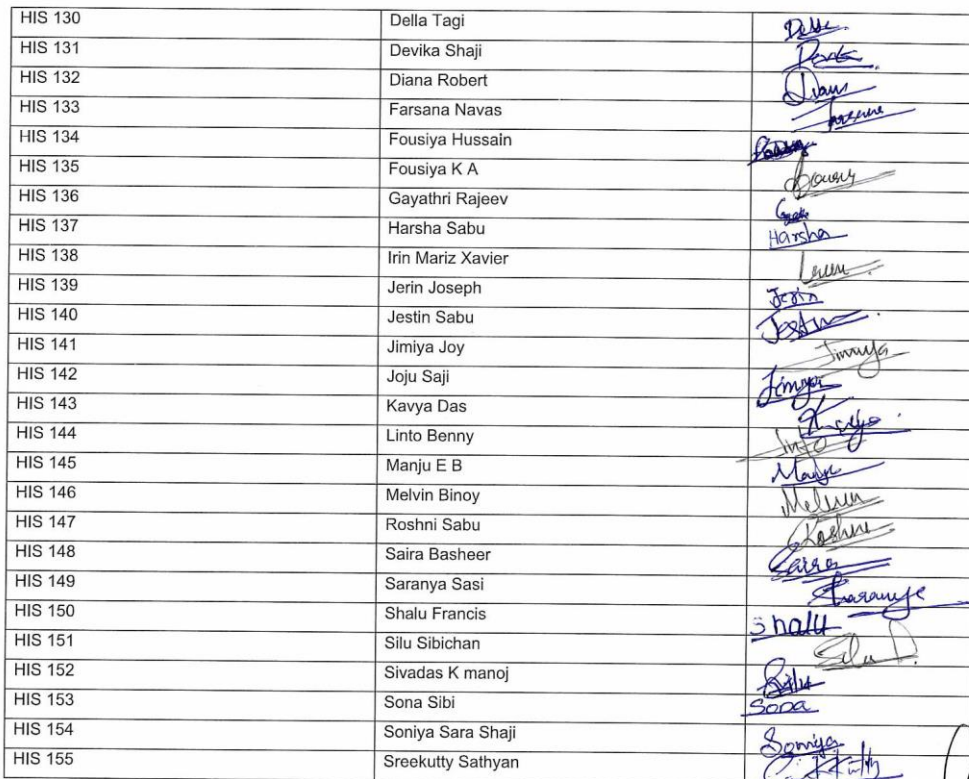 HIS 130 Della Tagi
HIS 131 Devika Shaji
HIS 132 Diana Robert
HIS 133 Farsana Navas
HIS 134 Fousiya Hussain
HIS 135 Fousiya K A
HIS 136 Gayathri Rajeev
HIS 137 Harsha Sabu Harsha
HIS 138 Irin Mariz Xavier
HIS 139 Jerin Joseph Jerin
HIS 140 Jestin Sabu
HIS 141 Jimiya Joy Jimiya
HIS 142 Joju Saji
HIS 143 Kavya Das
HIS 144 Linto Benny
HIS 145 Manju E B
HIS 146 Melvin Binoy Melvin
HIS 147 Roshni Sabu Roshni
HIS 148 Saira Basheer Saira
HIS 149 Saranya Sasi
HIS 150 Shalu Francis Shalu
HIS 151 Silu Sibichan
HIS 152 Sivadas K manoj
HIS 153 Sona Sibi Sona
HIS 154 Soniya Sara Shaji Soniya
HIS 155 Sreekutty Sathyan